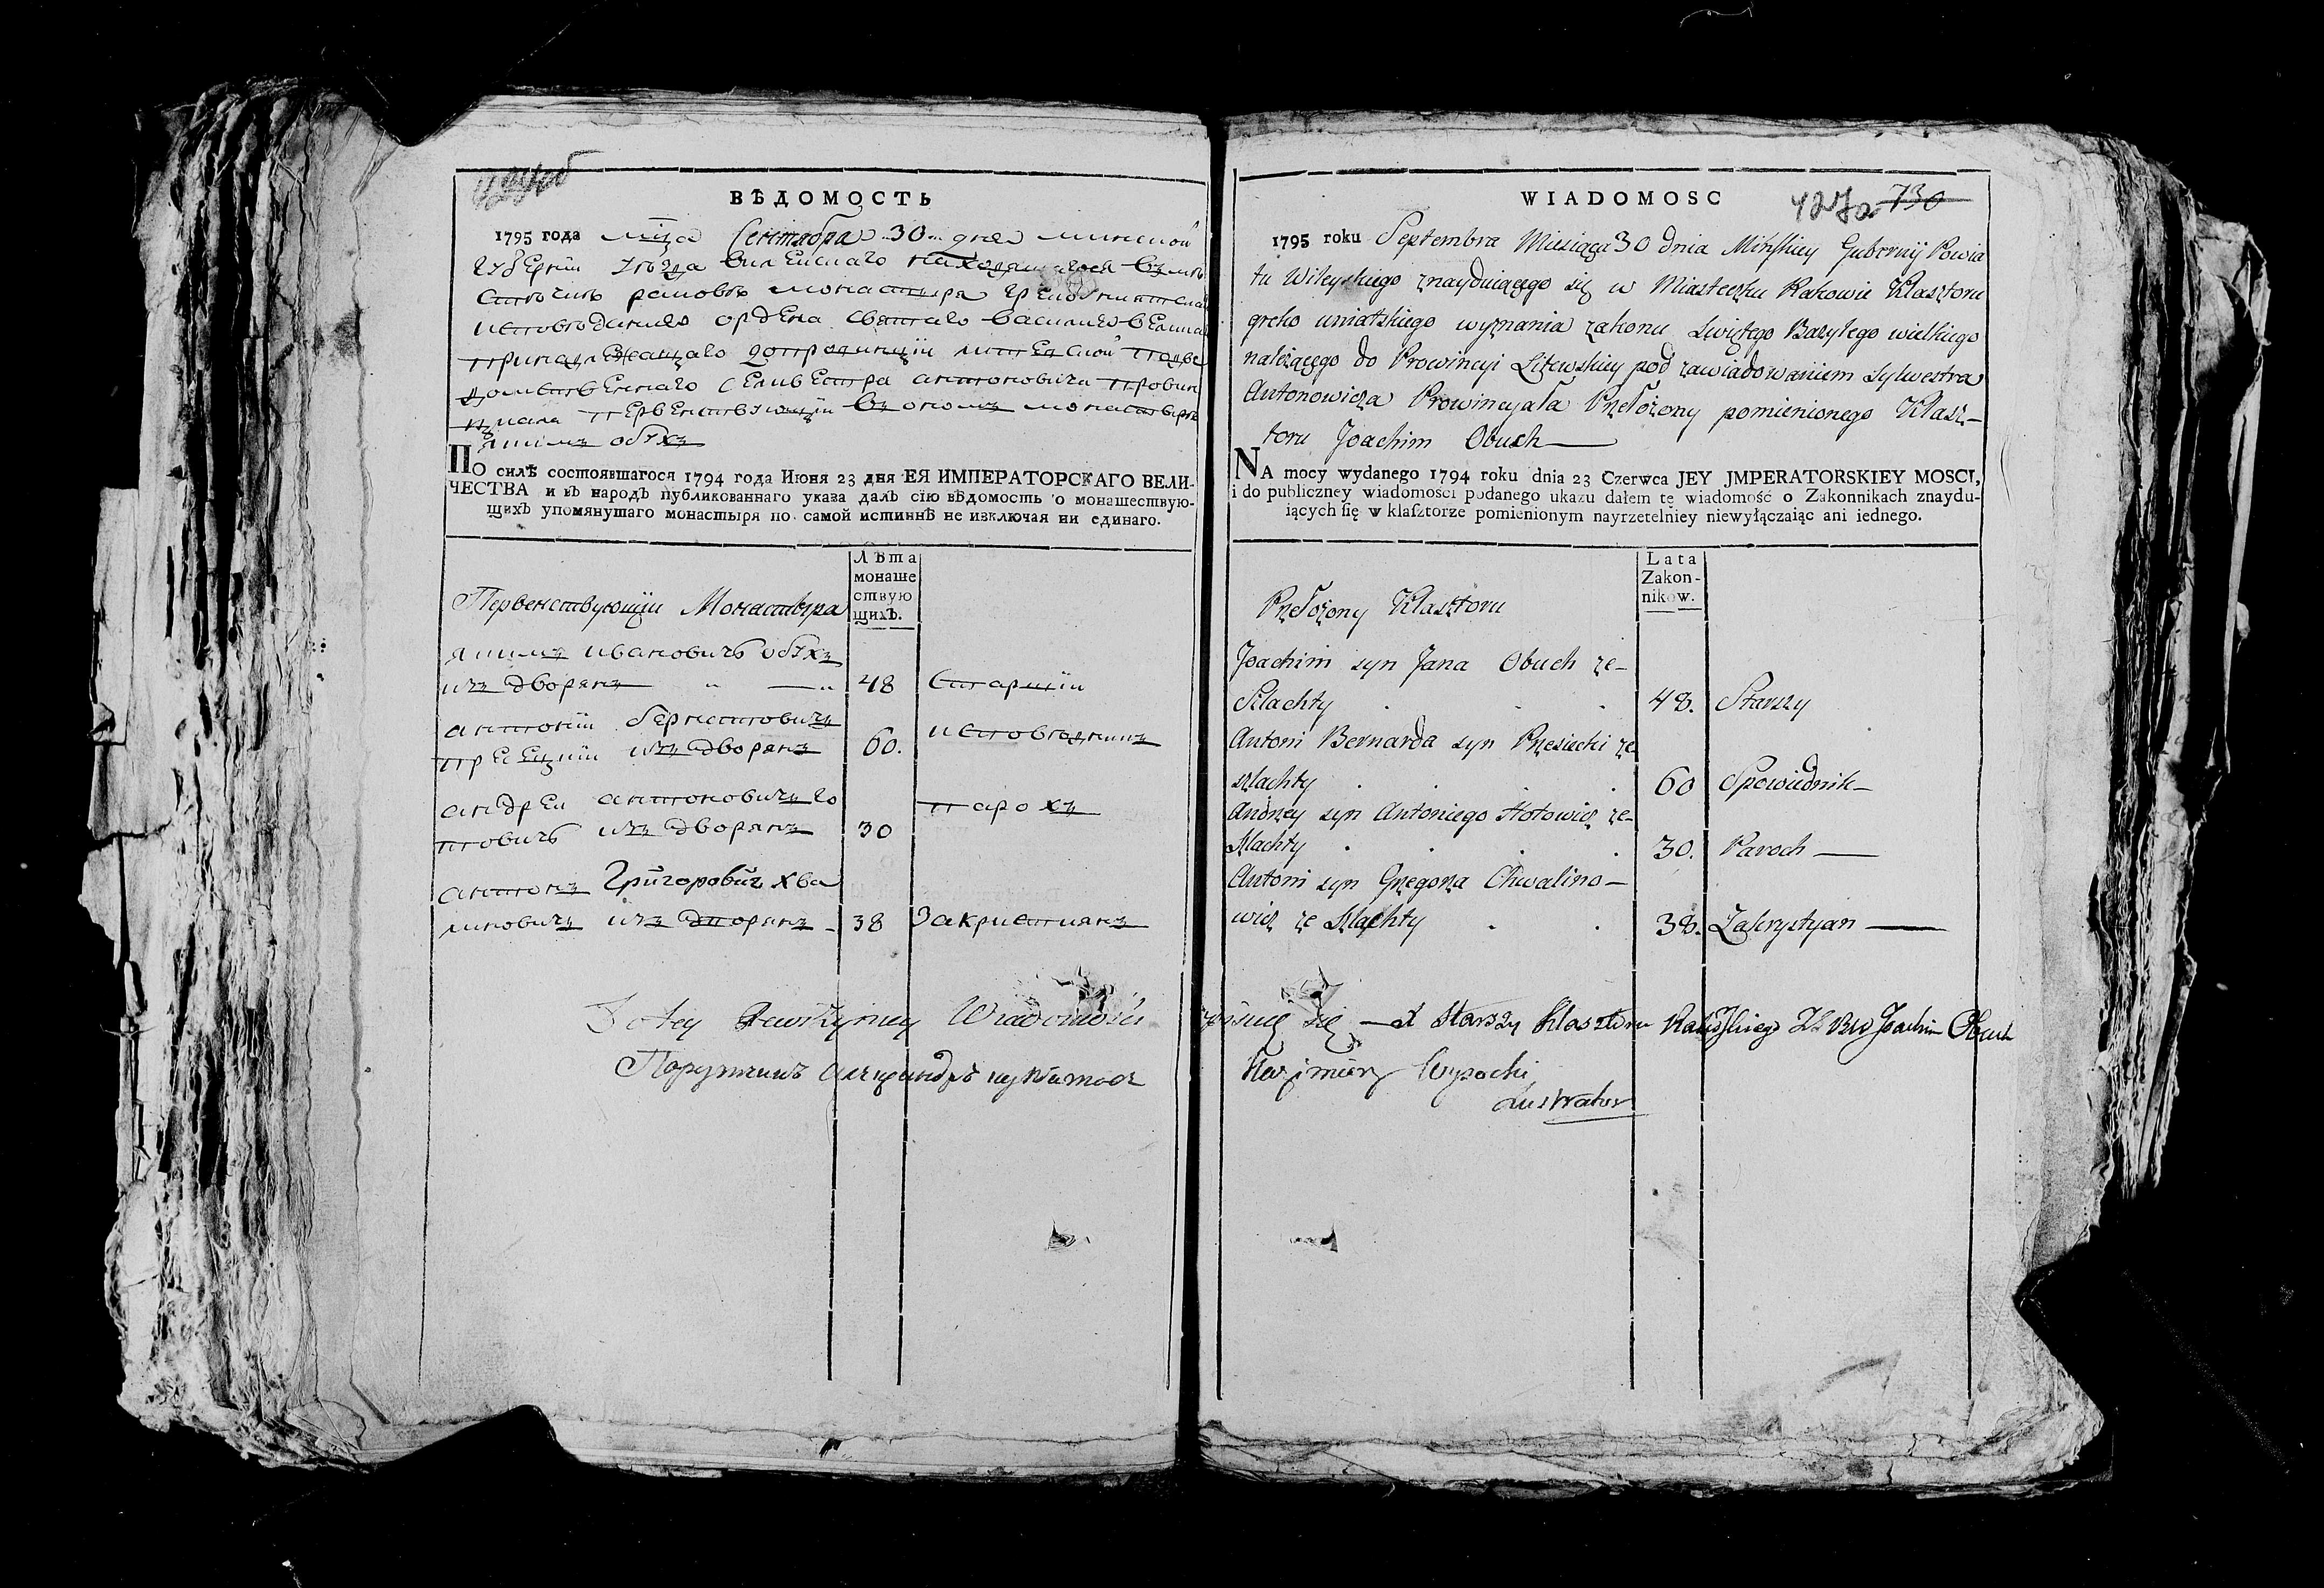 ВѢДОМОСТЬ
1795 года мца Сентября 30 дня минской
губернии уѣзда вилейскаго находящагося въ мѣ
стечкѣ раковѣ монастыря греко униатска
исповѣдания ордена святаго василия велика
принадлежащаго до провинцыи литевской под вѣ
домственнаго селивестра антоновича провин
цыала первенствующии въ ономъ монастырѣ
якимъ обухъ
ПО силѣ состоявшагося 1794 года Июня 23 дня ЕЯ ИМПЕРАТОРСКАГО ВЕЛИ-
ЧЕСТВА и въ народъ публикованнаго указа далъ сїю вѣдомость о монашествую-
щихъ упомянутаго монастыря по самой истиннѣ не изключая ни единаго.
Лѣта
монаше
ствую
щихъ.
Первенствующїи Монастыра
якимъ ивановичъ обухъ
изъ дворянъ 48 Старшїи
антонїи бернатовичъ
пресецкїи изъ дворянъ 60. исповѣдникъ
андреи антоновичъ го
товичъ изъ дворянъ 30 парохъ
антонъ Григоровичъ хва
линовичъ изъ дворянъ - 38 Закристиянъ
WIADOMOSC
427a 730
1795 roku Septembra Miesiąca 30 dnia Mińskiey Gubernij Powia
tu Wileyskiego znayduiącego się w Miasteczku Rakowie Klasztoru
greko uniatskiego wyznania zakonu Swiętego Bazylego wielkiego
należącego do Prowincyi Litewskiey pod zawiadowaniem Sylwestra
Antonowicza Prowincyała Przełożony pomienionego Klasz-
toru Joachim Obuch
NA mocy wydanego 1794 roku dnia 23 Czerwca JEY JMPERATORSKIEY MOSCI,
i do publiczney wiadomości podanego ukazu dałem tę wiadomość o Zakonnikach znaydu-
iących się w klasztorze pomienionym nayrzetelniey niewyłączaiąc ani iednego.
Lata
Zakon-
nikow.
Przełożony Klasztoru
Joachim syn Jana Obuch ze-
Szlachty 48. Starszy
Antoni Bernarda syn Przesiecki ze
szlachty 60 Spowiednik
Andrzey syn Antoniego Hotowicz ze-
Szlachty 30. Paroch
Antoni syn Grzegorza Chwalino-
wicz ze Szlachty 38. Zakrystyan
Do tey Rewizyiney Wiadomości pisuię się Starszy Klasztoru Joachim Obuch
Порутчикъ
Kazimierz Wysocki
Lustrator